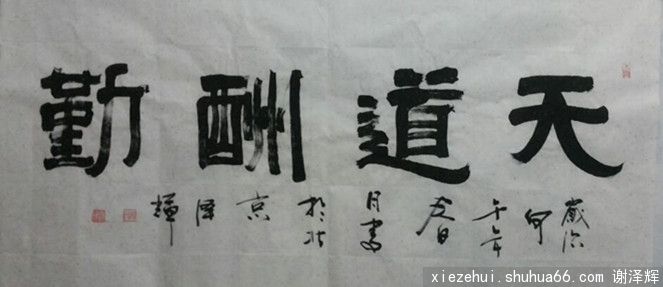 天道酬勤
歲次甲午年春月書於北京澤輝
xiezehui.shuhua66.com 谢泽辉